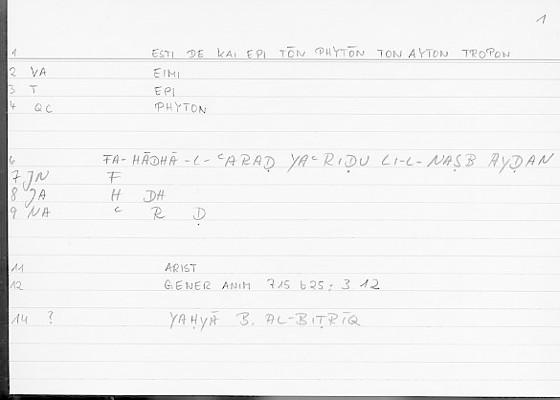 1
1 ESTI DE KAI EPI TŌN PHYTŌN TON AYTON TROPON
2 VA EIMI
3 T EPI
4 QC PHYTON
6 FA-HĀDHĀ-L-ᶜARAḌ YAᶜRIḌU LI-L-NAṢB AYḌAN
7 JN F
8 JA H DH
9 NA ᶜ R Ḍ
11 ARIST
12 GENER ANIM 715 b25; 3 12
14 ? YAḤYĀ B. AL-BIṬRĪQ